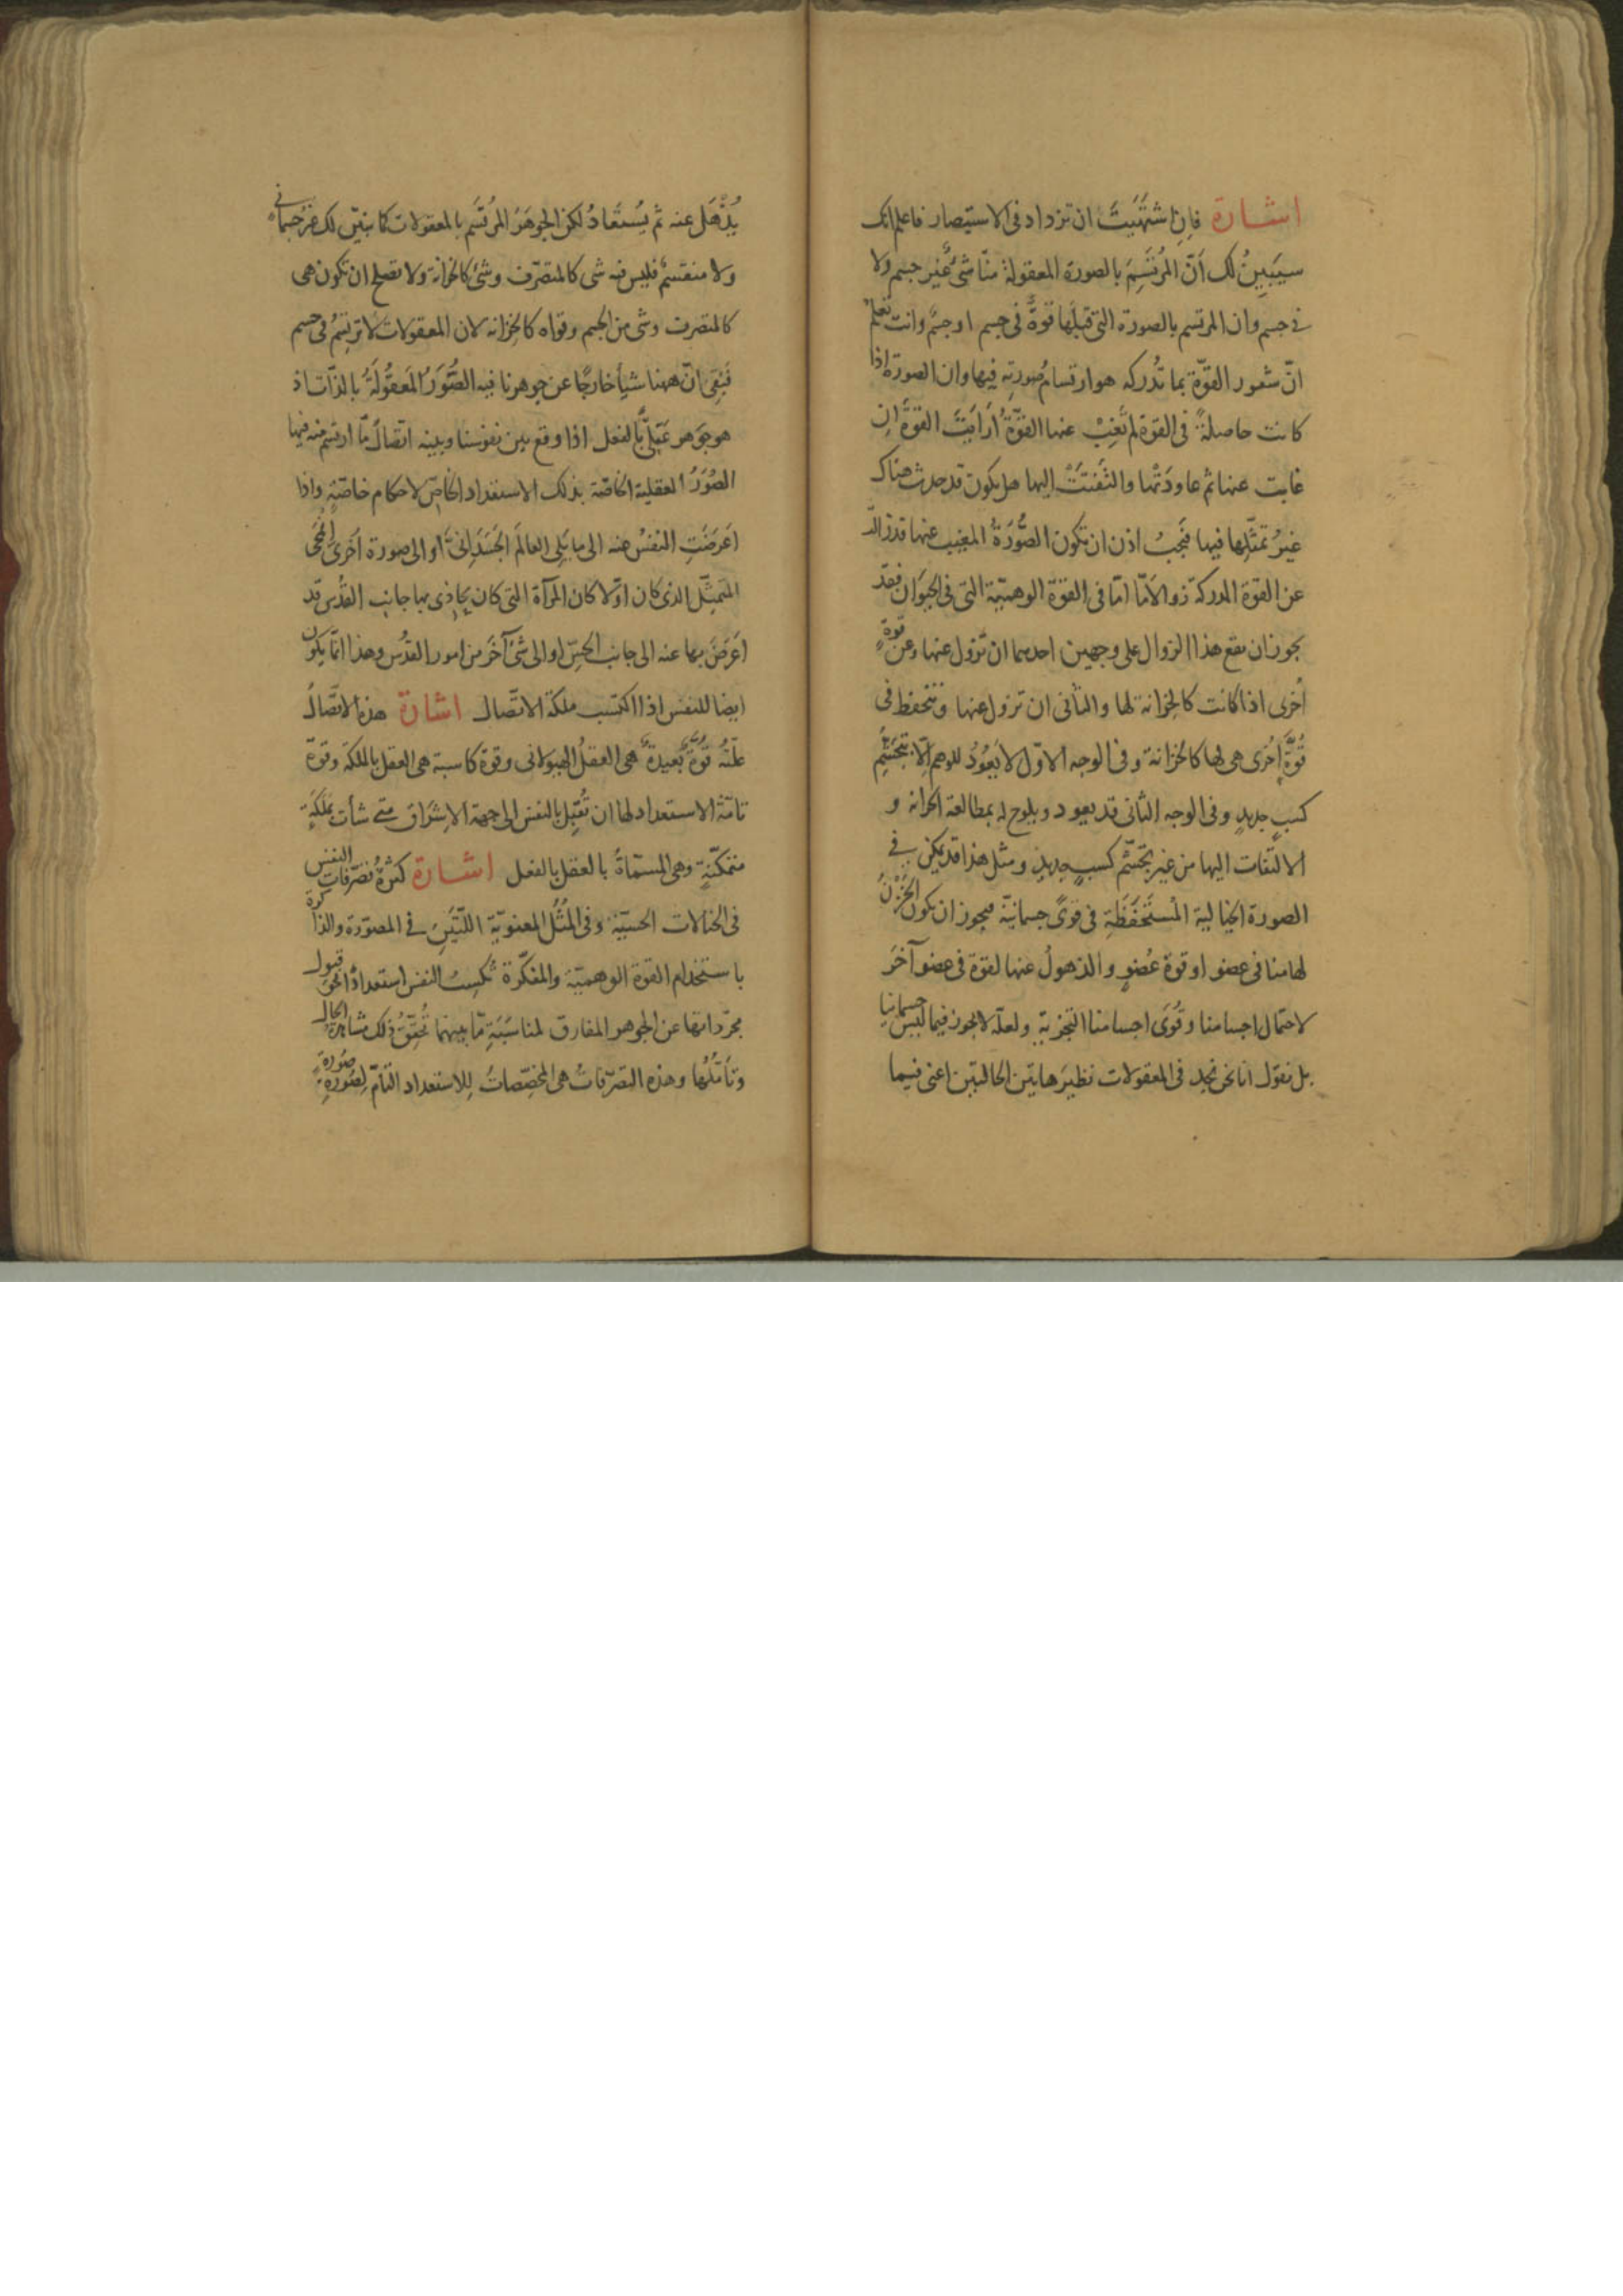 اشارة فان اشتَهَيتَ ان تزداد فى الاستبصار فاعلم انك
سيَبِينُ لك اَنّ المرُتَسِمَ بالصورة المعقولة منّا شئٌ غير جسم ولا
فى جسم وان المرتسم بالصورة التى قبلَها قوةٌ فى جسم او جسمٌ وانت تعلم
انّ شعور القوّة بما تُدركه هو ارتسام صُورتِه فيها وان الصورة اذا
كانت حاصلةً فى القوة لم تَغِبْ عنها القوّةُ اَرَاَيتَ القوةَ اِن
غابت عنها ثم عاودَتْها والتَفَتَتْ اليها هل يكون قد حدث هناك
غيرُ تمثّلِها فيها فيَجبُ اذن ان تكون الصُّورَةُ المغيب عنها قد زالت
عن القوة المدركة زوالا مّا امّا فى القوّة الوهميّة التى فى الحيَوَان فقد
يجوز ان يقع هذا الزوال على وجهين احدهما ان تزول عنها وعن قوةٍ
اُخرى اذا كانت كالخِزانة لها والثانى ان تزول عنها وتنحفظ فى
قُوّةٍ اُخرى هى لها كالخزانة وفى الوجه الاوّل لا يَعُودُ للوهم اِلّا بتجَشّم
كسبٍ جديدٍ وفى الوجه الثانى قد يعود ويلوح له بمطالعة الخزانة و
الالتفات اليها من غير تجشّم كسبٍ جديدٍ ومثل هذا قد يمكن فى
الصورة الخيالية المُستَحفَظَةِ فى قوىً جسمانيّة فيجوز ان يكون الخَزْنُ
لها منا فى عضو او قوة عُضوٍ والذهولُ عنها لقوة فى عضو آخرَ
لاحتمال اجسامنا وقُوَى اجسامنا التجزية ولعلّه لا يجوز فيما ليس جسمانيا
بل نقول انا نحن نجد فى المعقولات نظيرَ هاتين الحالتين اعنى فيما
يُذْهَل عنه ثم يُستعَادُ لكن الجوهَرُ المرُتَسِم بالمعقولات كما تبيّن لك غيرُ جسمانىّ
ولا منقسمٌ فليس فيه شى كالمتصرّف وشئ كالخزانة ولا تصلح ان تكون هى
كالمتصرف وشى من الجسم وقواه كالخزانة لان المعقولات لا ترتسِمُ فى جسم
فبَقِىَ انّ ههنا شياً خارجًا عن جوهرنا فيه الصُّوَرُ المَعقُولَةُ بالذّات اذ
هو جوهر عَقلِىٌّ بالفعل اذا وقع بين نفوسنا وبينه اتّصالٌ مّا ارتسم منه فيها
الصُوَرُ العقلية الخاصّة بذلك الاستعداد الخاصّ لاحكام خاصّةٍ واذا
اَعرَضَتِ النفسُ عنه الى ما يَلِى العالمَ الجَسَدانِىَّ او الى صورة اُخرى انْمحَى
المتمثّل الذى كان اوّلا كان المرآة التى كان يُحاذى بها جانب القدُس قد
اُعرِضَ بها عنه الى جانب الحسّ او الى شئ آخَر من امور القدُس وهذا انّما يكون
ايضا للنفس اذا اكتسب ملكة الاتّصال اشارة هذه الاتّصالُ
علّتُه قوّةٌ بعيدةٌ هى العقلُ الهيولانى وقوة كاسبة هى العقل بالملكة وقوّة
تامّة الاستعداد لها ان تُقبِل بالنفس الى جهة الاِشراق متى شأت بمَلَكَةٍ
متمكّنةٍ وهى المسمّاةُ بالعقل بالفعل اشارة كثرةُ تصرّفات النفس
فى الخيالات الحسيّة وفى المُثُل المعنويّة اللّتَينِ فى المصوّرة والذاكرة
باستخدام القوة الوهميّة والمفكّرة تُكسِبُ النفس استعدادًا نحو قبول
مجرّداتها عن الجوهر المفارق لمناسَبَةٍ مّا بينهما تُحقّقُ ذلك مشاهدةُ الحال
وتأمّلُها وهذه التصرّفاتُ هى المخصِّصاتُ لِلاستعداد التامّ لصُورةٍ صُورةٍ